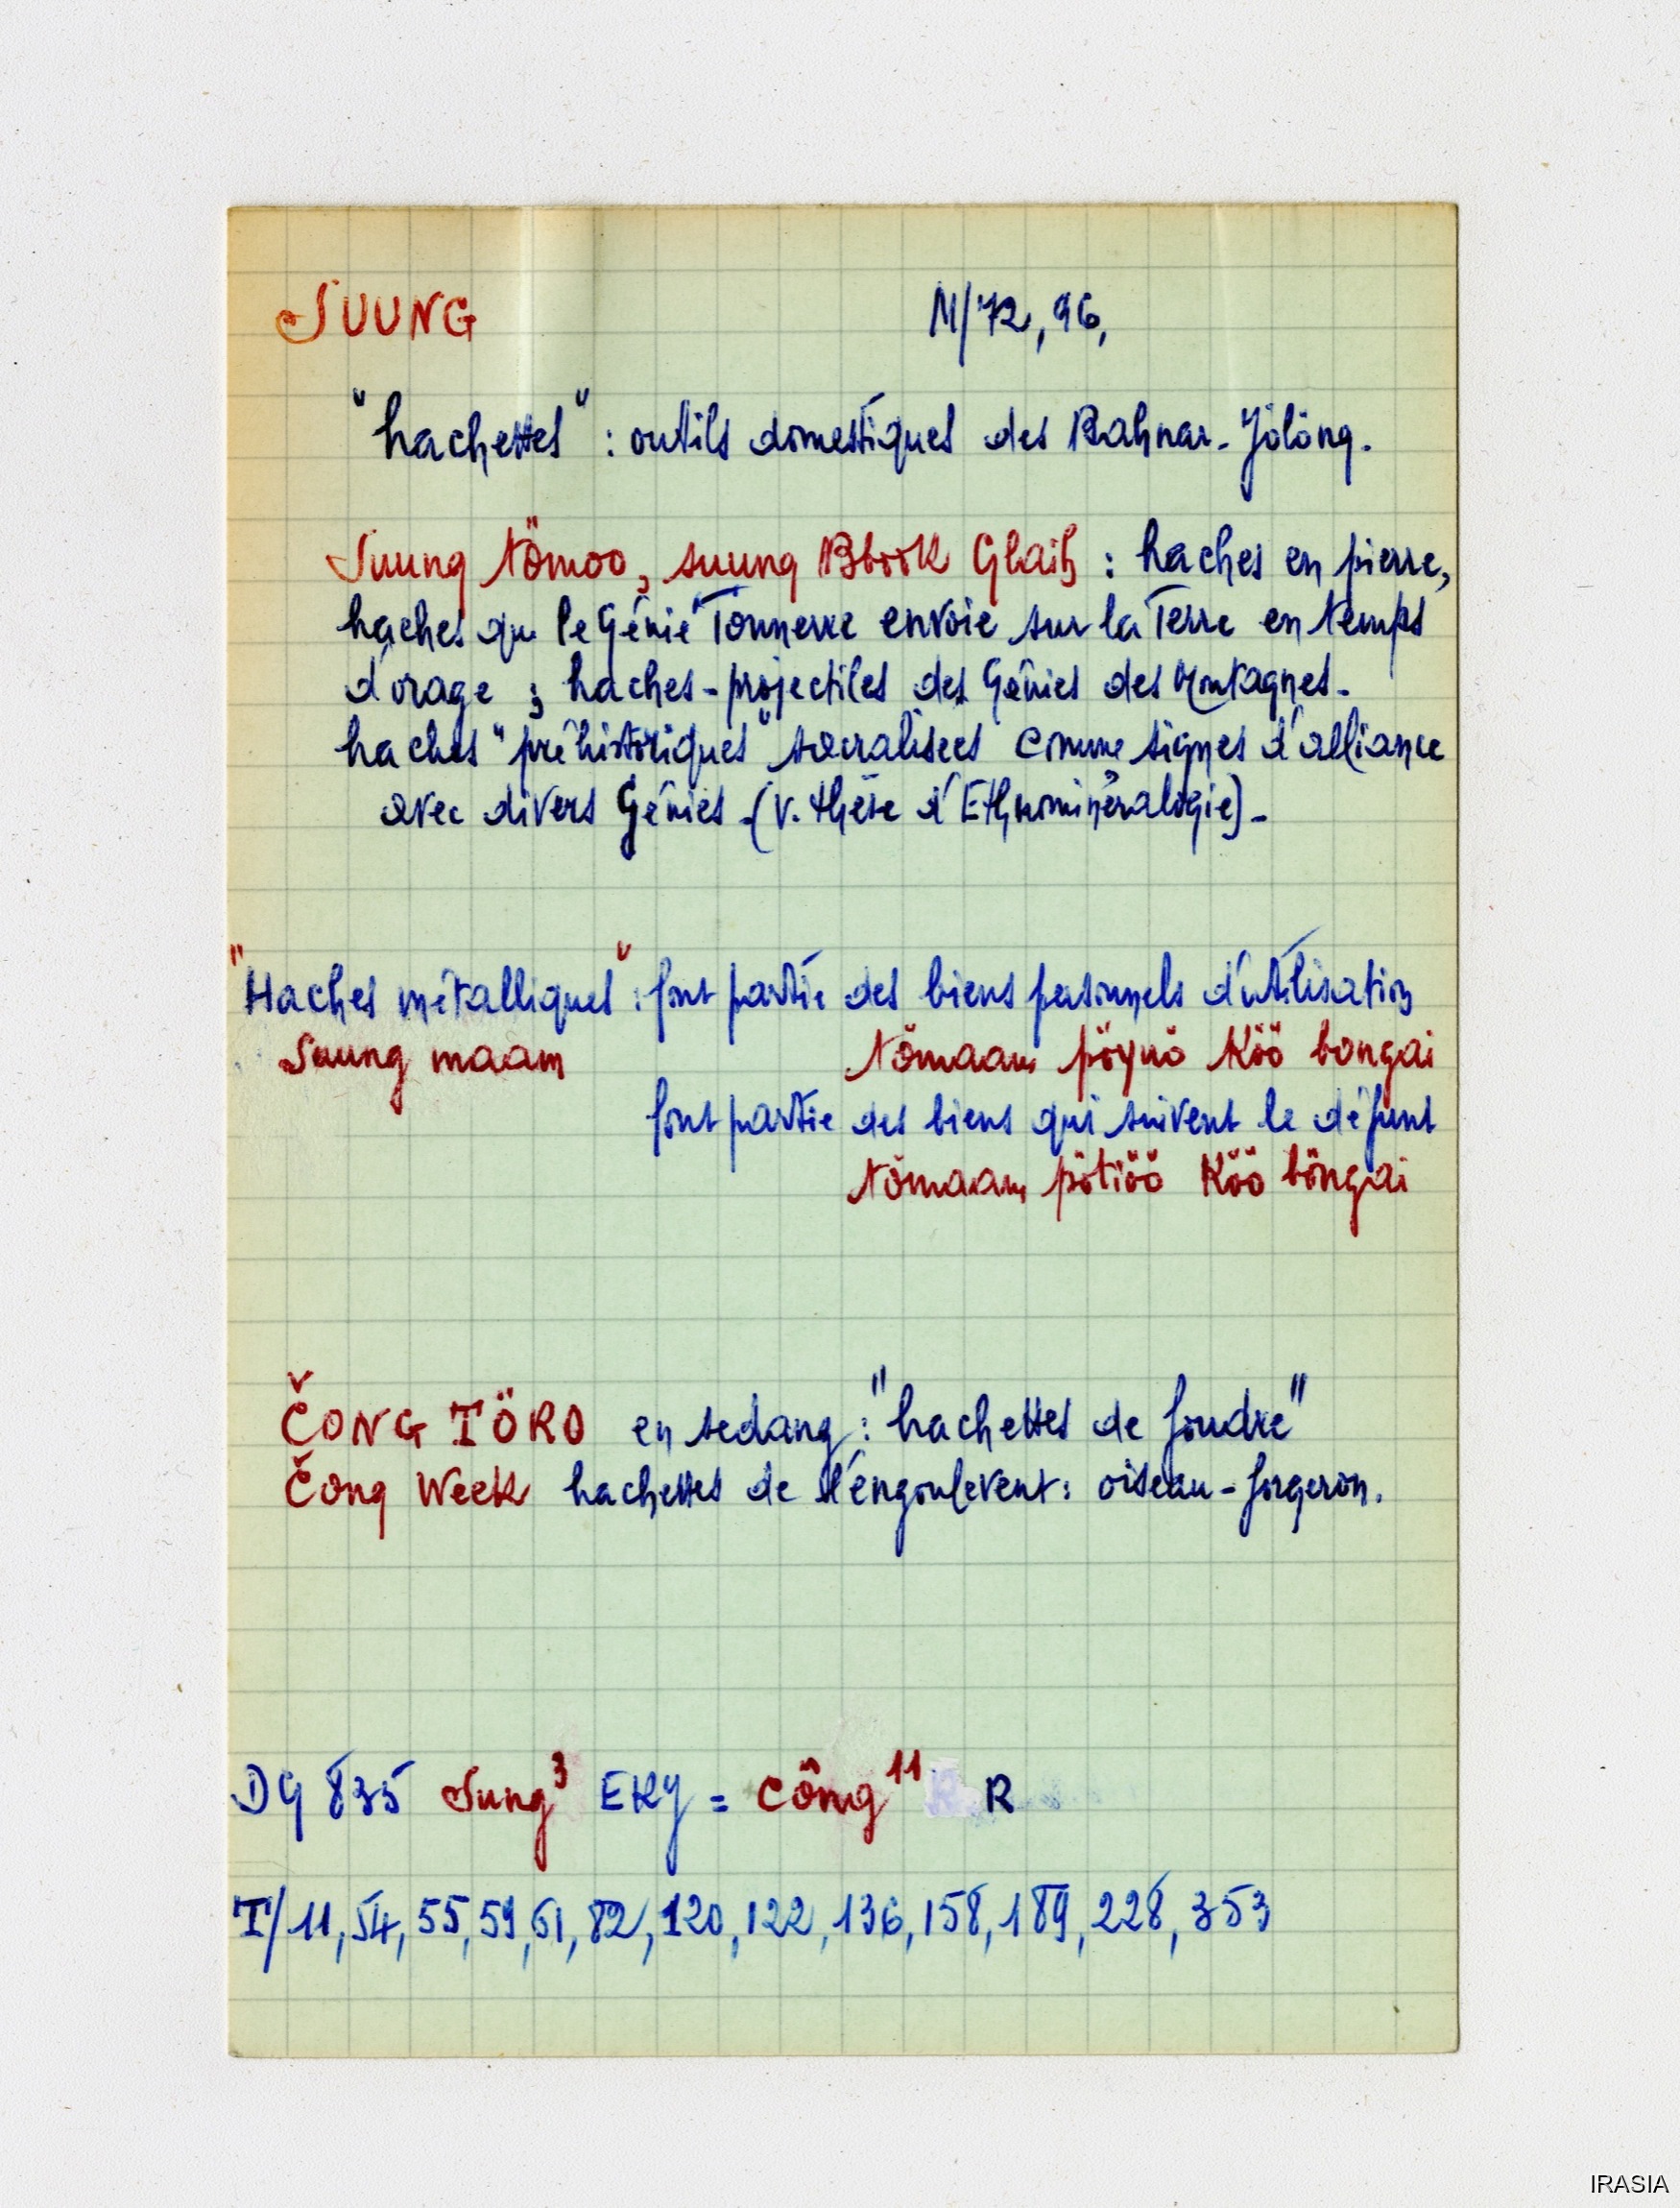 SUUNG M/72, 96,
"hachettes" : outils domestiques des Bahnar-Jölöng.
Suung tömoo, suung Bbook Glaih : haches en pierre,
haches que le Génie Tonnerre envoie sur la Terre en temps
d'orage ; haches-projectiles des Génies des Montagnes.
haches "préhistoriques" sacralisées comme signes d'alliance
avec divers Génies. (v. thèse d'Ethnominéralogie).
"Haches métalliques" : font partie des biens personnels d'utilisation
Suung maam tömaam pöynö Köö bongai
font partie des biens qui suivent le défunt
tömaam pötiöö Köö böngai
ČONG TÖRO en sedang : "hachettes de foudre"
Čong Week hachettes de l'engoulevent : oiseau-forgeron.
DG 835 Sung³ EKJ = Công¹¹ R
T/11, 54, 55, 59, 61, 82, 120, 122, 136, 158, 189, 228, 353
IRASIA